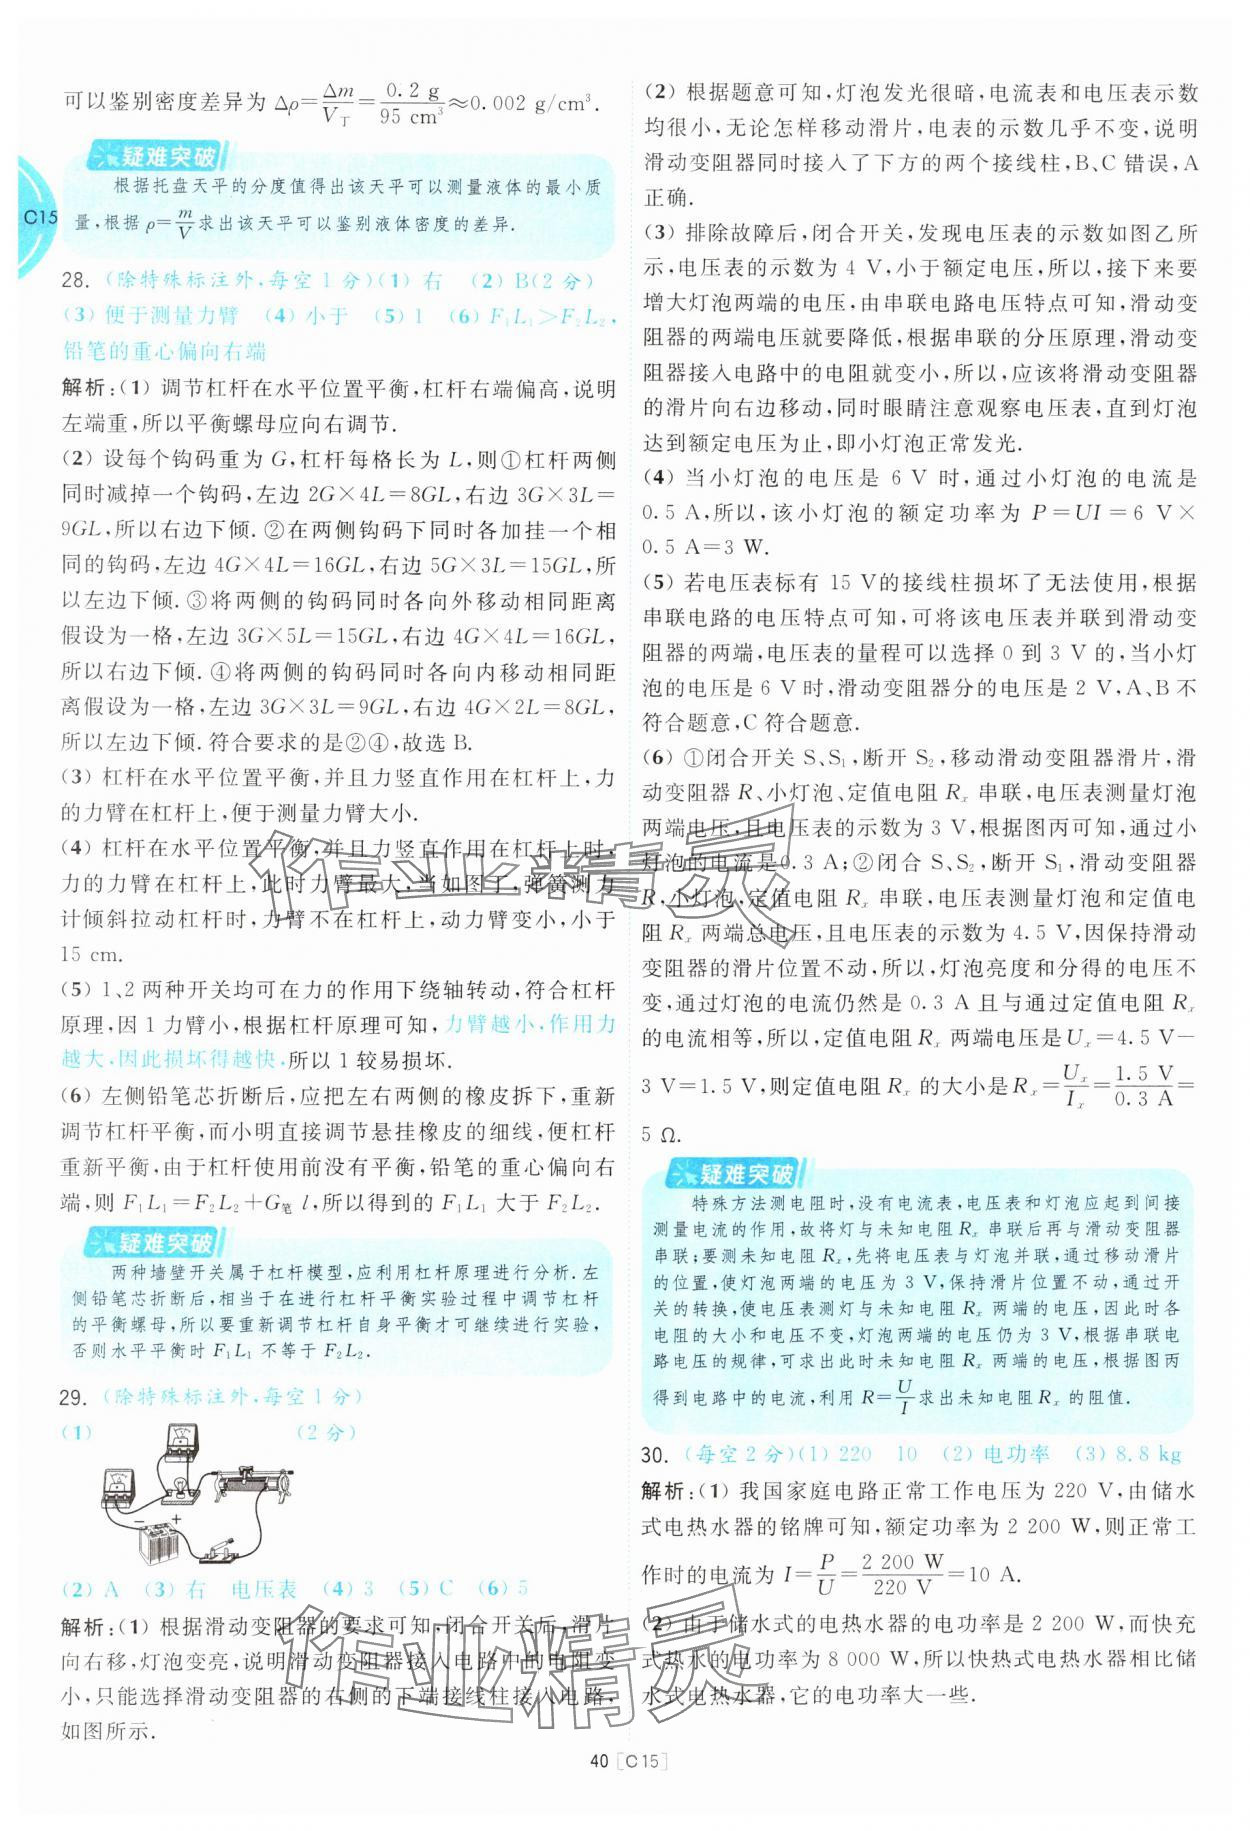 可以鉴别密度差异为 Δρ=Δm/V丁=0.2 g/95 cm³≈0.002 g/cm³.
疑难突破
根据托盘天平的分度值得出该天平可以测量液体的最小质
量,根据 ρ=m/V求出该天平可以鉴别液体密度的差异.
C15
28. (除特殊标注外,每空1分)(1) 右 (2) B(2分)
(3) 便于测量力臂 (4) 小于 (5) 1 (6) F₁L₁>F₂L₂,
铅笔的重心偏向右端
解析:(1) 调节杠杆在水平位置平衡,杠杆右端偏高,说明
左端重,所以平衡螺母应向右调节.
(2) 设每个钩码重为 G,杠杆每格长为 L,则①杠杆两侧
同时减掉一个钩码,左边 2G×4L=8GL,右边 3G×3L=
9GL,所以右边下倾.②在两侧钩码下同时各加挂一个相
同的钩码,左边 4G×4L=16GL,右边 5G×3L=15GL,所
以左边下倾.③将两侧的钩码同时各向外移动相同距离
假设为一格,左边 3G×5L=15GL,右边 4G×4L=16GL,
所以右边下倾.④将两侧的钩码同时各向内移动相同距
离假设为一格,左边 3G×3L=9GL,右边 4G×2L=8GL,
所以左边下倾.符合要求的是②④,故选 B.
(3) 杠杆在水平位置平衡,并且力竖直作用在杠杆上,力
的力臂在杠杆上,便于测量力臂大小.
(4) 杠杆在水平位置平衡,并且力竖直作用在杠杆上时,
力的力臂在杠杆上,此时力臂最大,当如图丁,弹簧测力
计倾斜拉动杠杆时,力臂不在杠杆上,动力臂变小,小于
15 cm.
(5) 1、2两种开关均可在力的作用下绕轴转动,符合杠杆
原理,因1力臂小,根据杠杆原理可知,力臂越小,作用力
越大,因此损坏得越快,所以1较易损坏.
(6) 左侧铅笔芯折断后,应把左右两侧的橡皮拆下,重新
调节杠杆平衡,而小明直接调节悬挂橡皮的细线,使杠杆
重新平衡,由于杠杆使用前没有平衡,铅笔的重心偏向右
端,则 F₁L₁=F₂L₂+G笔 l,所以得到的 F₁L₁ 大于 F₂L₂.
疑难突破
两种墙壁开关属于杠杆模型,应利用杠杆原理进行分析.左
侧铅笔芯折断后,相当于在进行杠杆平衡实验过程中调节杠杆
的平衡螺母,所以要重新调节杠杆自身平衡才可继续进行实验,
否则水平平衡时 F₁L₁ 不等于 F₂L₂.
29. (除特殊标注外,每空1分)
(1) (2分)
− +
(2) A (3) 右 电压表 (4) 3 (5) C (6) 5
解析:(1) 根据滑动变阻器的要求可知,闭合开关后,滑片
向右移,灯泡变亮,说明滑动变阻器接入电路中的电阻变
小,只能选择滑动变阻器的右侧的下端接线柱接入电路,
如图所示.
(2) 根据题意可知,灯泡发光很暗,电流表和电压表示数
均很小,无论怎样移动滑片,电表的示数几乎不变,说明
滑动变阻器同时接入了下方的两个接线柱,B、C错误,A
正确.
(3) 排除故障后,闭合开关,发现电压表的示数如图乙所
示,电压表的示数为 4 V,小于额定电压,所以,接下来要
增大灯泡两端的电压,由串联电路电压特点可知,滑动变
阻器的两端电压就要降低,根据串联的分压原理,滑动变
阻器接入电路中的电阻就变小,所以,应该将滑动变阻器
的滑片向右边移动,同时眼睛注意观察电压表,直到灯泡
达到额定电压为止,即小灯泡正常发光.
(4) 当小灯泡的电压是 6 V 时,通过小灯泡的电流是
0.5 A,所以,该小灯泡的额定功率为 P=UI=6 V×
0.5 A=3 W.
(5) 若电压表标有 15 V的接线柱损坏了无法使用,根据
串联电路的电压特点可知,可将该电压表并联到滑动变
阻器的两端,电压表的量程可以选择 0 到 3 V 的,当小灯
泡的电压是 6 V时,滑动变阻器分的电压是 2 V,A、B不
符合题意,C符合题意.
(6) ①闭合开关 S、S₁,断开 S₂,移动滑动变阻器滑片,滑
动变阻器 R、小灯泡、定值电阻 Rₓ 串联,电压表测量灯泡
两端电压,且电压表的示数为 3 V,根据图丙可知,通过小
灯泡的电流是0.3 A;②闭合 S、S₂,断开 S₁,滑动变阻器
R,小灯泡,定值电阻 Rₓ 串联,电压表测量灯泡和定值电
阻 Rₓ 两端总电压,且电压表的示数为 4.5 V,因保持滑动
变阻器的滑片位置不动,所以,灯泡亮度和分得的电压不
变,通过灯泡的电流仍然是 0.3 A 且与通过定值电阻 Rₓ
的电流相等,所以,定值电阻 Rₓ 两端电压是 Uₓ=4.5 V−
3 V=1.5 V,则定值电阻 Rₓ 的大小是 Rₓ=Uₓ/Iₓ=1.5 V/0.3 A=
5 Ω.
疑难突破
特殊方法测电阻时,没有电流表,电压表和灯泡应起到间接
测量电流的作用,故将灯与未知电阻 Rₓ 串联后再与滑动变阻器
串联;要测未知电阻 Rₓ,先将电压表与灯泡并联,通过移动滑片
的位置,使灯泡两端的电压为 3 V,保持滑片位置不动,通过开
关的转换,使电压表测灯与未知电阻 Rₓ 两端的电压,因此时各
电阻的大小和电压不变,灯泡两端的电压仍为 3 V,根据串联电
路电压的规律,可求出此时未知电阻 Rₓ 两端的电压,根据图丙
得到电路中的电流,利用 R=U/I求出未知电阻 Rₓ 的阻值.
30. (每空2分)(1) 220 10 (2) 电功率 (3) 8.8 kg
解析:(1) 我国家庭电路正常工作电压为 220 V,由储水
式电热水器的铭牌可知,额定功率为 2 200 W,则正常工
作时的电流为 I=P/U=2 200 W/220 V=10 A.
(2) 由于储水式的电热水器的电功率是 2 200 W,而快充
式热水的电功率为 8 000 W,所以快热式电热水器相比储
水式电热水器,它的电功率大一些.
作业精灵
作业精灵
40 [C15]